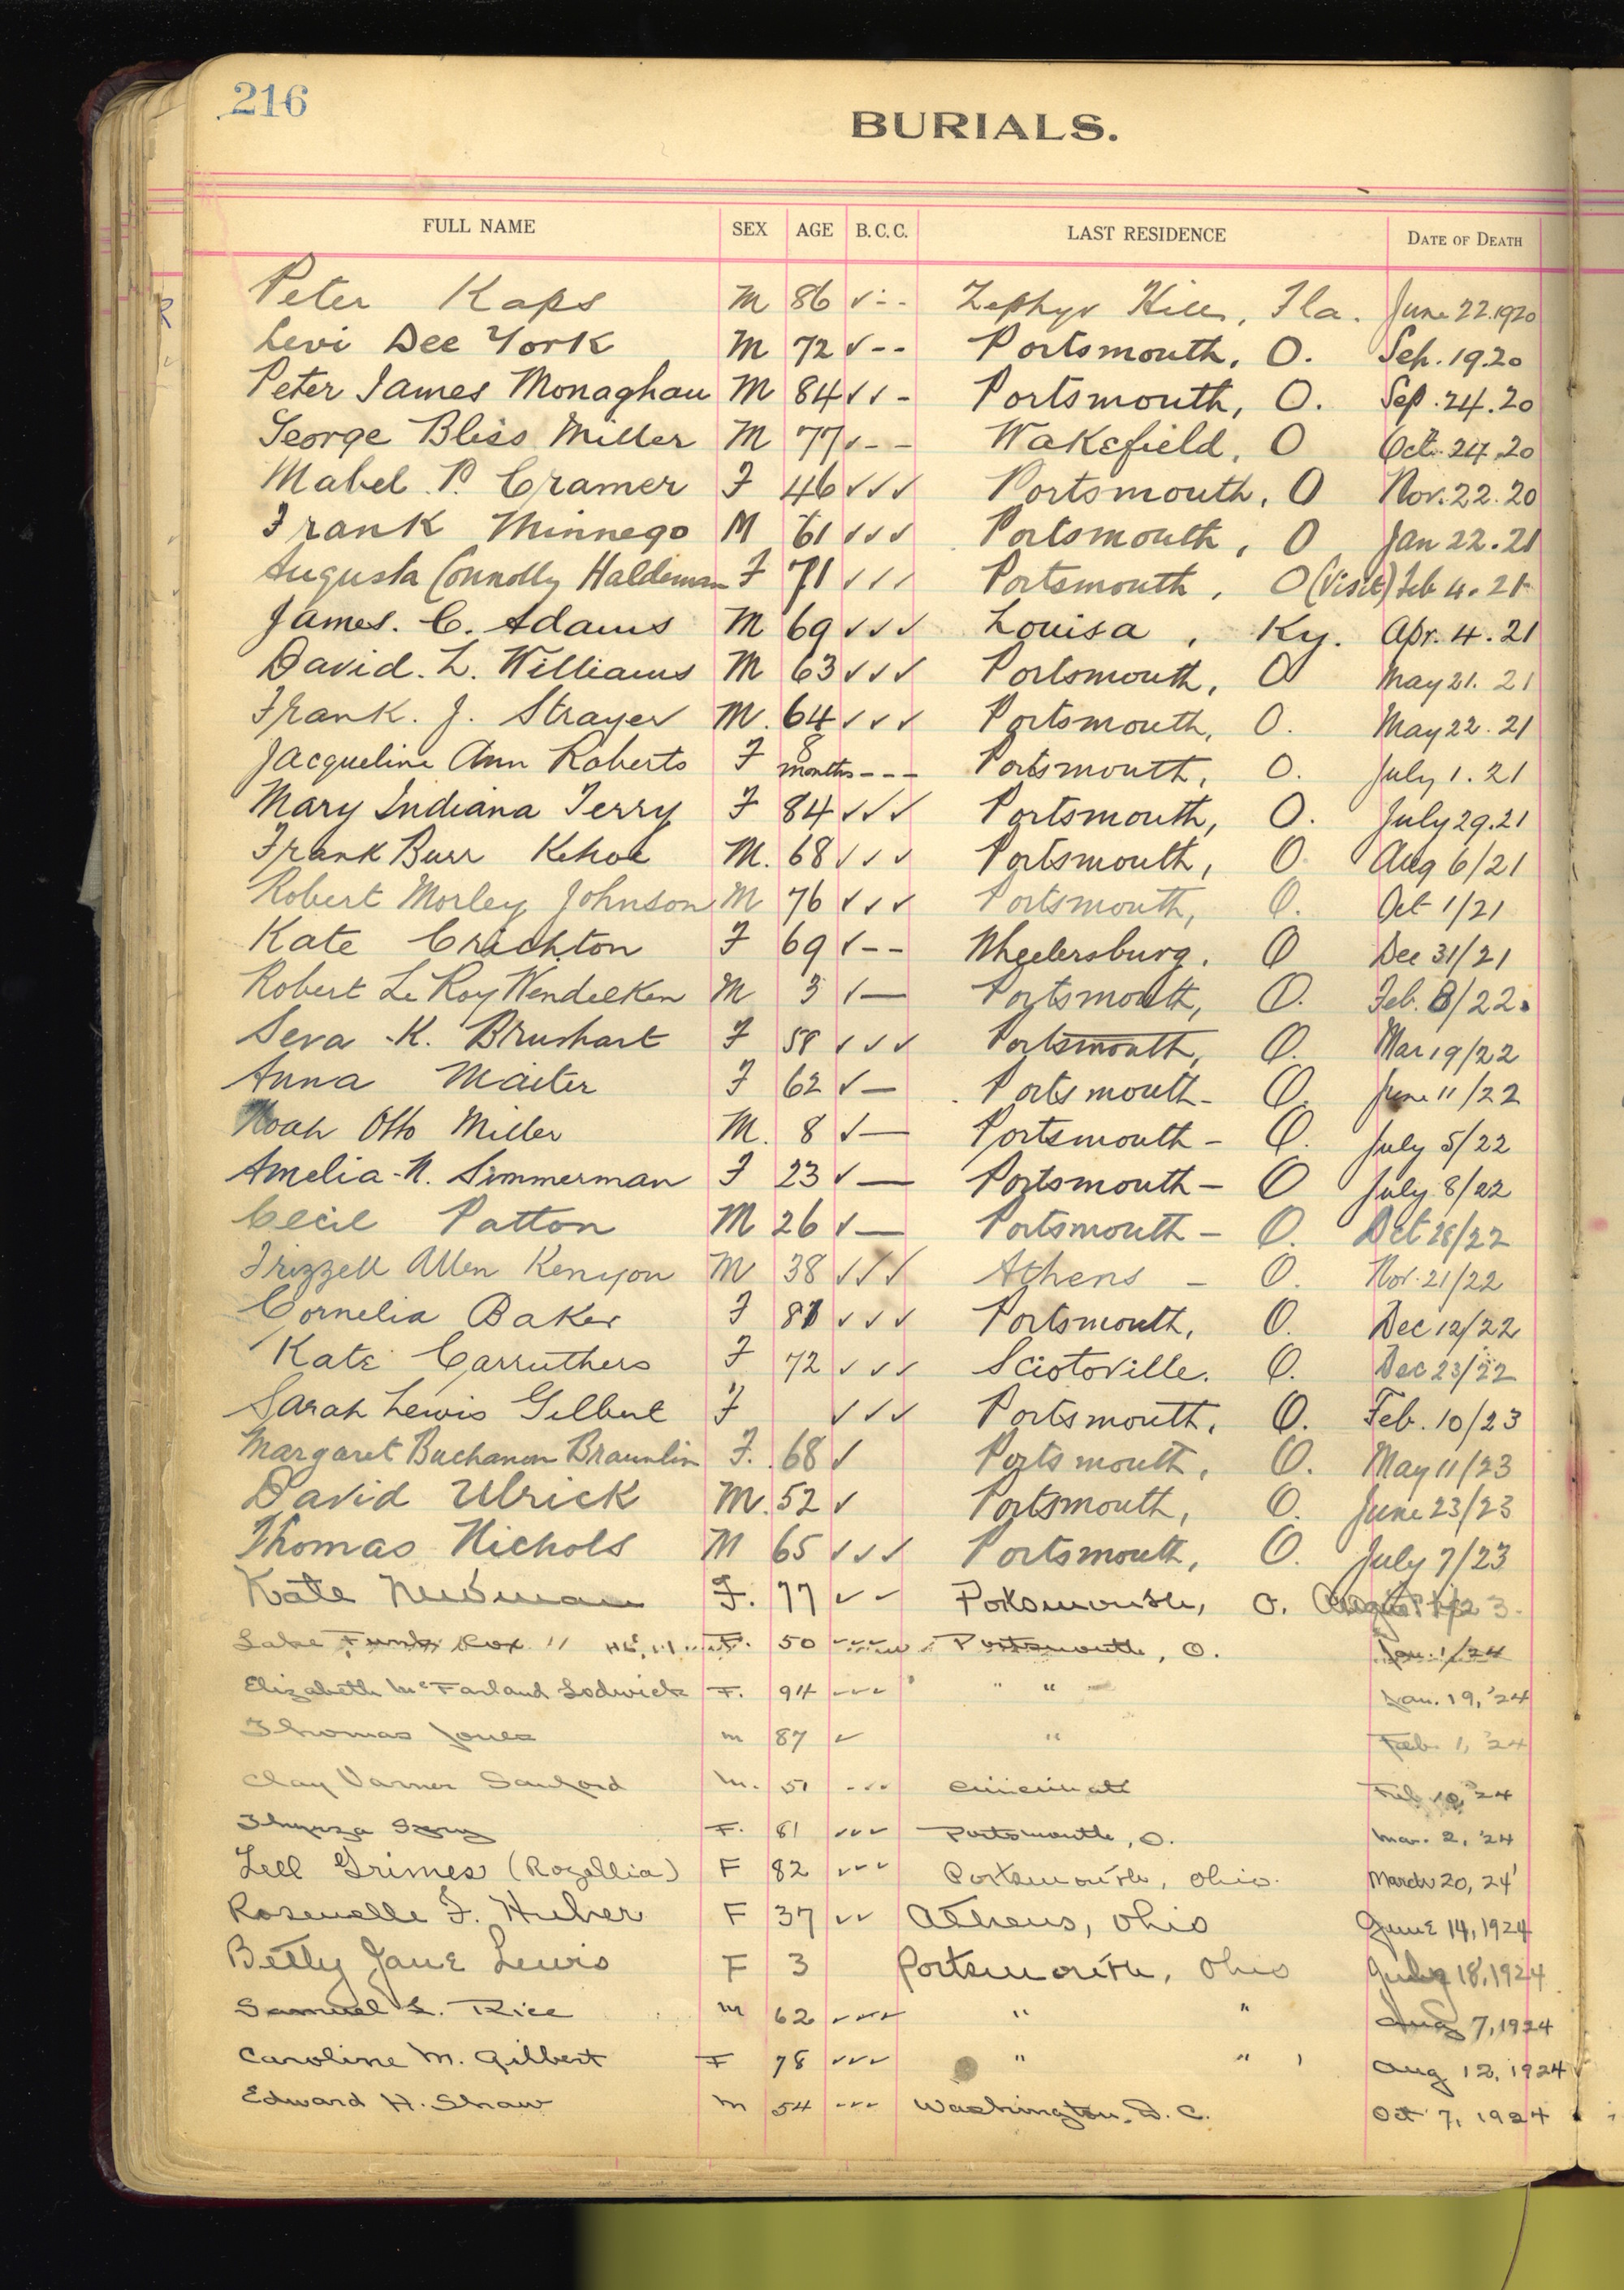 216
BURIALS.
FULL NAME SEX AGE B.C.C. LAST RESIDENCE DATE OF DEATH
Peter Kaps M 86 ✓-- Zephyr Hills, Fla. June 22.1920
Levi Dee York M 72 ✓-- Portsmouth, O. Sep. 19.20
Peter James Monaghan M 84 ✓✓- Portsmouth, O. Sep. 24.20
George Bliss Miller M 77 ✓-- Wakefield, O Oct. 24.20
Mabel P. Cramer F 46 ✓✓✓ Portsmouth, O Nov. 22.20
Frank Minnego M 61 ✓✓✓ Portsmouth, O Jan 22.21
Augusta Connolly Haldeman F 71 ✓✓✓ Portsmouth, O (Visit) Feb 4.21
James. C. Adams M 69 ✓✓✓ Louisa, Ky. Apr. 4.21
David. L. Williams M 63 ✓✓✓ Portsmouth, O May 21. 21
Frank. J. Strayer M. 64 ✓✓✓ Portsmouth, O. May 22. 21
Jacqueline Ann Roberts F 8 months --- Portsmouth, O. July 1. 21
Mary Indiana Terry F 84 ✓✓✓ Portsmouth, O. July 29.21
Frank Burr Kehoe M. 68 ✓✓✓ Portsmouth, O. Aug 6/21
Robert Morley Johnson M 76 ✓✓✓ Portsmouth, O. Oct 1/21
Kate Crichton F 69 ✓-- Wheelersburg. O Dec 31/21
Robert Le Roy Wendelken M 3 ✓— Portsmouth, O. Feb. 8/22.
Seva K. Brushart F 58 ✓✓✓ Portsmouth, O. Mar 19/22
Anna Maiter F 62 ✓— Portsmouth - O. June 11/22
Noah Otto Miller M. 8 ✓— Portsmouth - O. July 5/22
Amelia N. Simmerman F 23 ✓— Portsmouth - O July 8/22
Cecil Patton M 26 ✓— Portsmouth - O. Oct 28/22
Frizzell Allen Kenyon M 38 ✓✓✓ Athens - O. Nov. 21/22
Cornelia Baker F 81 ✓✓✓ Portsmouth, O. Dec 12/22
Kate Carruthers F 72 ✓✓✓ Sciotoville. O. Dec 23/22
Sarah Lewis Gilbert F ✓✓✓ Portsmouth, O. Feb. 10/23
Margaret Buchanan Braunlin F. 68 ✓ Portsmouth, O. May 11/23
David Ulrick M. 52 ✓ Portsmouth, O. June 23/23
Thomas Nichols M 65 ✓✓✓ Portsmouth, O. July 7/23
Kate Newman F. 77 ✓✓ Portsmouth, O. August 23.
Lake F. 50 Portsmouth, O. Jan. 1/24
Elizabeth McFarland Lodwick F. 94 ✓✓✓ " " Jan. 19, '24
Thomas Jones m 87 ✓ " Feb. 1, '24
Clay Varner Sanford m. 51 ✓✓✓ Cincinnati Feb '24
Thyrza F. 81 ✓✓✓ Portsmouth, O. Mar. 2, '24
Lell Grimes (Rozellia) F 82 ✓✓✓ Portsmouth, Ohio. March 20, 24'
Rosenelle F. Huber F 37 ✓✓ Athens, Ohio June 14, 1924
Betty Jane Lewis F 3 Portsmouth, Ohio July 18, 1924
Samuel L. Rice m 62 ✓✓✓ " " Aug 7, 1924
Caroline M. Gilbert F 78 ✓✓✓ " " Aug 12, 1924
Edward H. Shaw m 54 ✓✓✓ Washington, D. C. Oct 7, 1924